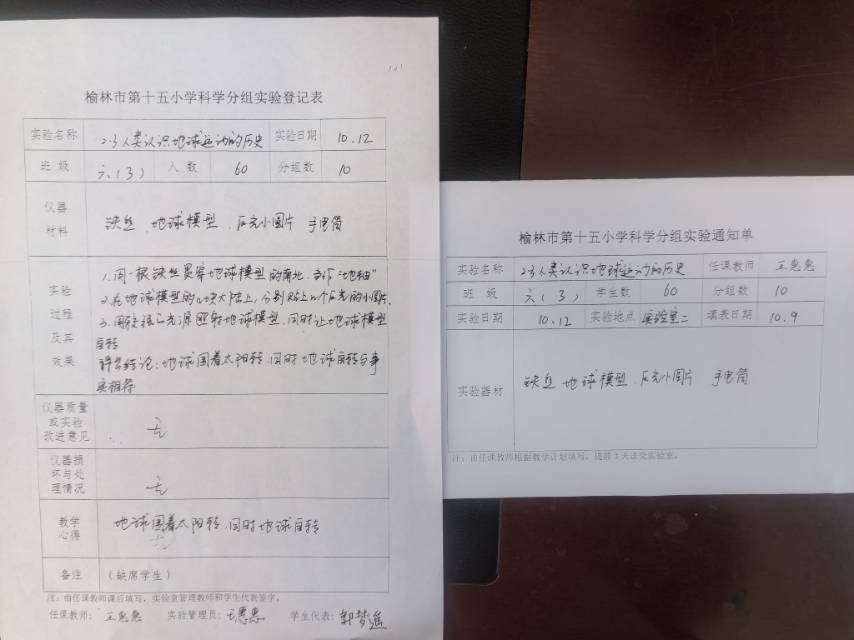 榆林市第十五小学科学分组实验登记表
实验名称 2.3人类认识地球运动的历史 实验日期 10.12
班 级 六(3) 人 数 60 分组数 10
仪器材料 铁丝 地球模型 反光小图片 手电筒
实验过程及其效果
1.用一根铁丝贯穿地球模型的南北,当作"地轴"
2.在地球模型的几块大陆上,分别贴上几个反光的小图片.
3.用较强的光源照射地球模型,同时让地球模型
自转
科学结论:地球围着太阳转,同时地球自转与事
实相符
仪器质量或实验改进意见 无
仪器损坏与处理情况 无
教学心得 地球围着太阳转,同时地球自转
备注 (缺席学生)
注:由任课教师课后填写,实验室管理教师和学生代表签字。
任课教师: 王惠惠 实验管理员: 王惠惠 学生代表: 郭梦
榆林市第十五小学科学分组实验通知单
实验名称 2.3人类认识地球运动的历史 任课教师 王惠惠
班 级 六(3) 学生数 60 分组数 10
实验日期 10.12 实验地点 实验室二 填表日期 10.9
实验器材 铁丝 地球模型 反光小图片 手电筒
注:由任课教师根据教学计划填写,提前3天送交实验室。